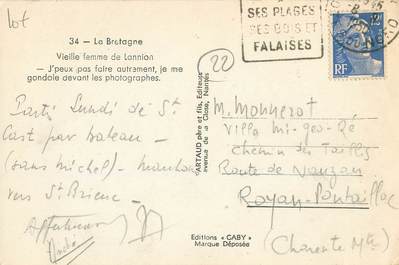 Lot
34 — La Bretagne
Vieille femme de Lannion
— J'peux pas faire autrement, je me
gondole devant les photographes.
SES PLAGES
SES BOIS ET
FALAISES
22
12F
RF
Parti Lundi de St
Cast par bateau —
(sans Michel) —
vers St Brieuc —
ARTAUD père et fils, Editeurs
avenue de la Close, Nantes
M. Monnerot
Villa Mi-geo-Ré
Chemin des
Route de Nauzan
Royan-Pontaillac
(Charente Mme)
Editions "GABY"
Marque Déposée